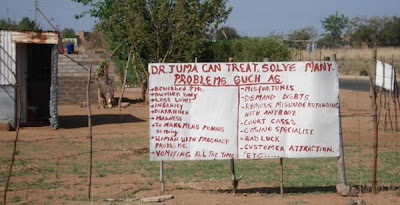 DR. JUMA CAN TREAT. SOLVE MANY.
PROBLEMS SUCH AS.
BEWITCHED P/M.
SWOLLEN BODY
LOST LOVER
INSANITY
DIARRHOEA
MADNESS
TO MAKE MENS PENNIS
strong
WOMAN WITH PREGNANCY
PROBLEMS.
VOMITING ALL THE TIME
MISFORTUNES.
DEMAND DEBTS
REMISS MISUNDERSTANDING
WITH ANYBODY.
COURT CASES.
CASINO SPECIALIST
BAD LUCK
CUSTOMER ATTRACTION.
ETC